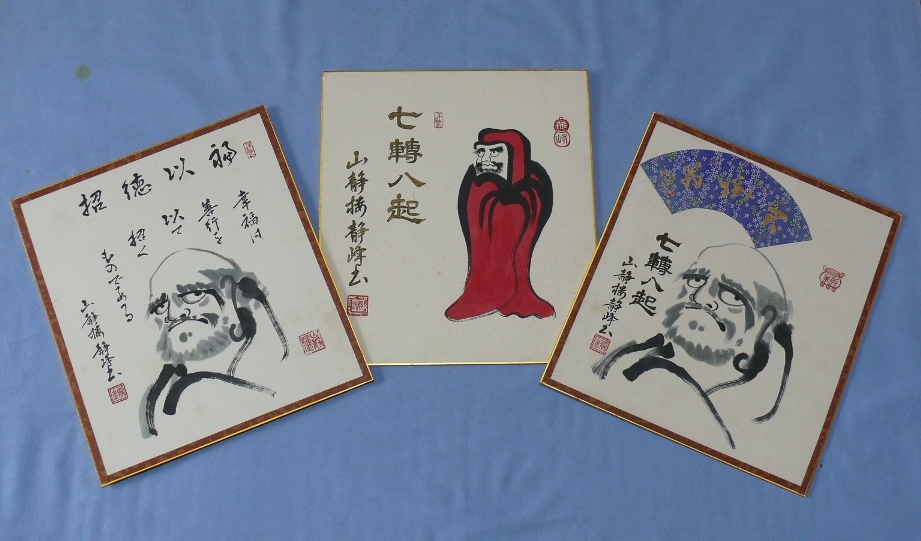 福以徳招
幸福は
善行を
以て
招く
ものである
山静楼静峰書
七轉八起
山静楼静峰書
七轉八起
山静楼静峰書